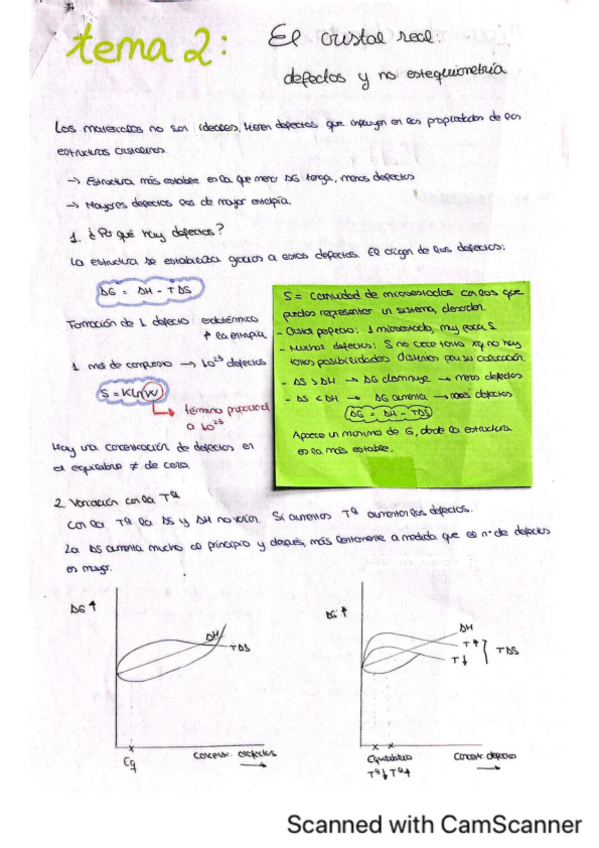 tema 2:
El cristal real:
defectos y no estequiometría
Los materiales no son ideales, tienen defectos que influyen en las propiedades de las
estructuras cristalinas.
→ Estructura más estable es la que menor ΔG tenga, menos defectos
→ Mayores defectos los de mayor entropía.
1. ¿Por qué hay defectos?
La estructura se estabiliza gracias a estos defectos. El origen de los defectos:
ΔG = ΔH - TΔS
Formación de 1 defecto: endotérmico
↑ la entropía
1 mol de compuesto → 10²³ defectos
S = K Ln W
término proporcional
a 10²³
Hay una concentración de defectos en
el equilibrio ≠ de cero.
S = cantidad de microestados con los que
puedes representar un sistema, desorden.
- Cristal perfecto: 1 microestado, muy poca S.
- Muchos defectos: S no crece tanto xq no hay
tantas posibilidades distintas para su colocación.
- ΔS > ΔH → ΔG disminuye → defectos
- ΔS < ΔH → ΔG aumenta → defectos
ΔG = ΔH - TΔS
Aparece un mínimo de G, donde la estructura
es la más estable.
2. Variación con la Tª
Con la Tª la ΔS y ΔH no varían. Si aumentas Tª aumentan los defectos.
La ΔS aumenta mucho al principio y después, más lentamente a medida que el nº de defectos
es mayor.
ΔG ↑
ΔH
TΔS
Eq
Concentr. defectos
ΔG ↑
ΔH
T↑
T↓
TΔS
Equilibrio
Tª↓ Tª↑
Concentr. defectos
Scanned with CamScanner